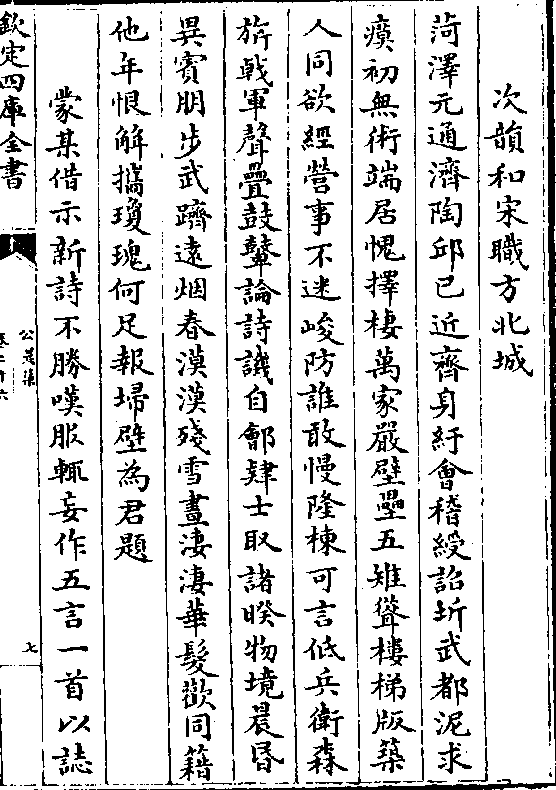 次韻和宋職方北城
菏澤元通濟陶邱已近齊身紆會稽綬詔圻武都泥求
瘼初無術端居愧擇棲萬家嚴壁壘五雉聳樓梯版築
人同欲經營事不迷峻防誰敢慢隆棟可言低兵衛森
旂戟軍聲疊鼓鼙論詩譏自鄶肄士取諸暌物境晨昏
異賓朋步武躋遠烟春漠漠殘雪晝凄凄華髮歡同籍
他年恨解攜瓊瑰何足報埽壁為君題
蒙某借示新詩不勝嘆服輒妄作五言一首以誌
欽定四庫全書
公是集
卷二十六
七